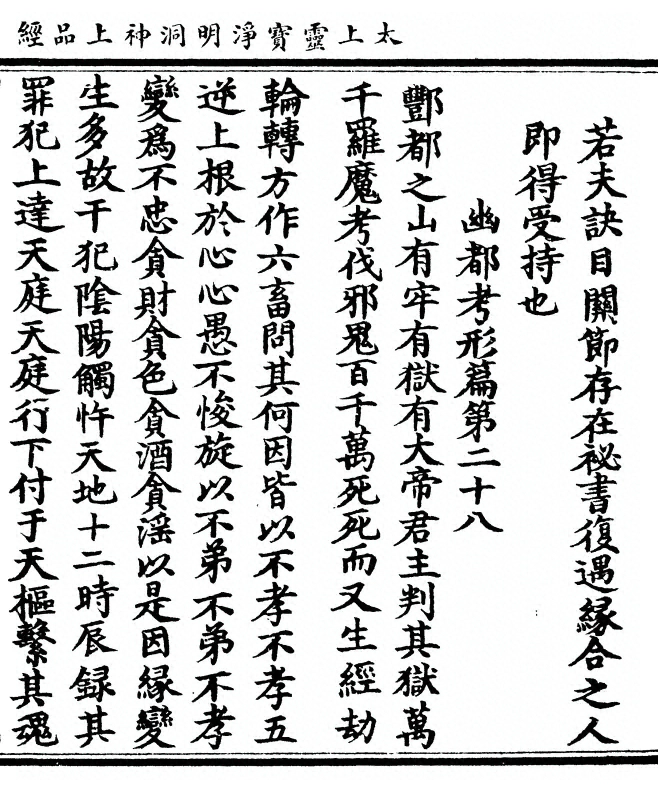 太上靈寶淨明洞神上品經
若夫訣目關節存在祕書復遇緣合之人
即得受持也
幽都考形篇第二十八
酆都之山有牢有獄有大帝君主判其獄萬
千羅魔考伐邪鬼百千萬死死而又生經劫
輪轉方作六畜問其何因皆以不孝不孝五
逆上根於心心愚不悛旋以不弟不弟不孝
變爲不忠貪財貪色貪酒貪滛以是因緣變
生多故干犯隂陽觸忤天地十二時辰録其
罪犯上達天庭天庭行下付于天樞繫其魂